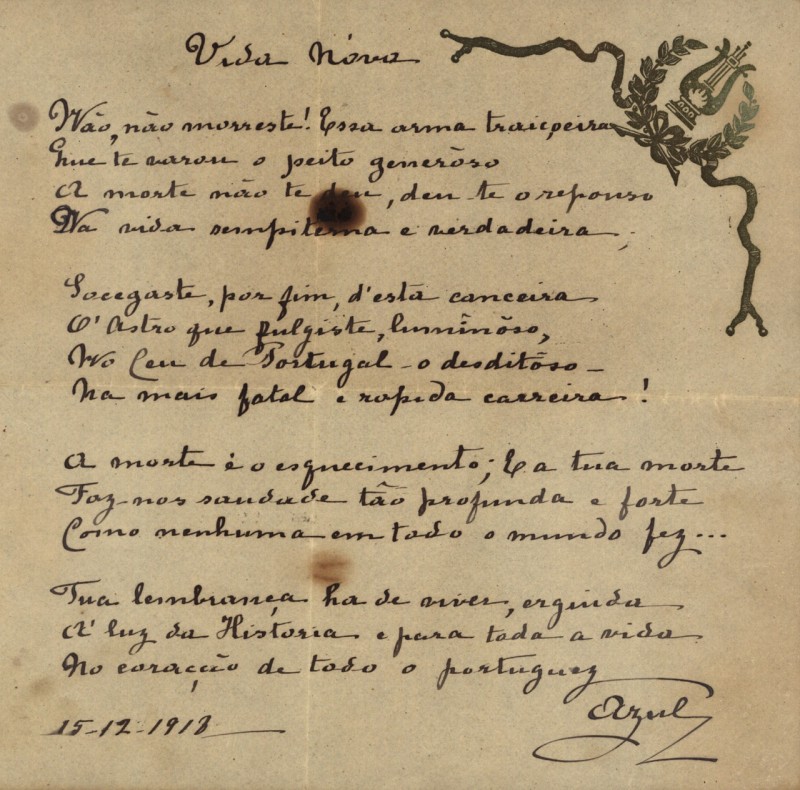 Vida Nóva
Não, não morreste! Essa arma traiçoeira
Que te varou o peito generôso
A morte não te deu, deu-te o repouso
Na vida sempiterna e verdadeira.
Socegaste, por fim, d'esta canceira
O' Astro que fulgiste, luminôso,
No Ceu de Portugal - o desditôso -
Na mais fatal e rapida carreira!
A morte é o esquecimento; E a tua morte
Faz-nos saudade tão profunda e forte
Como nenhuma em todo o mundo fez...
Tua lembrança ha de viver, erguida
A' luz da Historia e para toda a vida
No coracção de todo o portuguez
Azul
15-12-1918